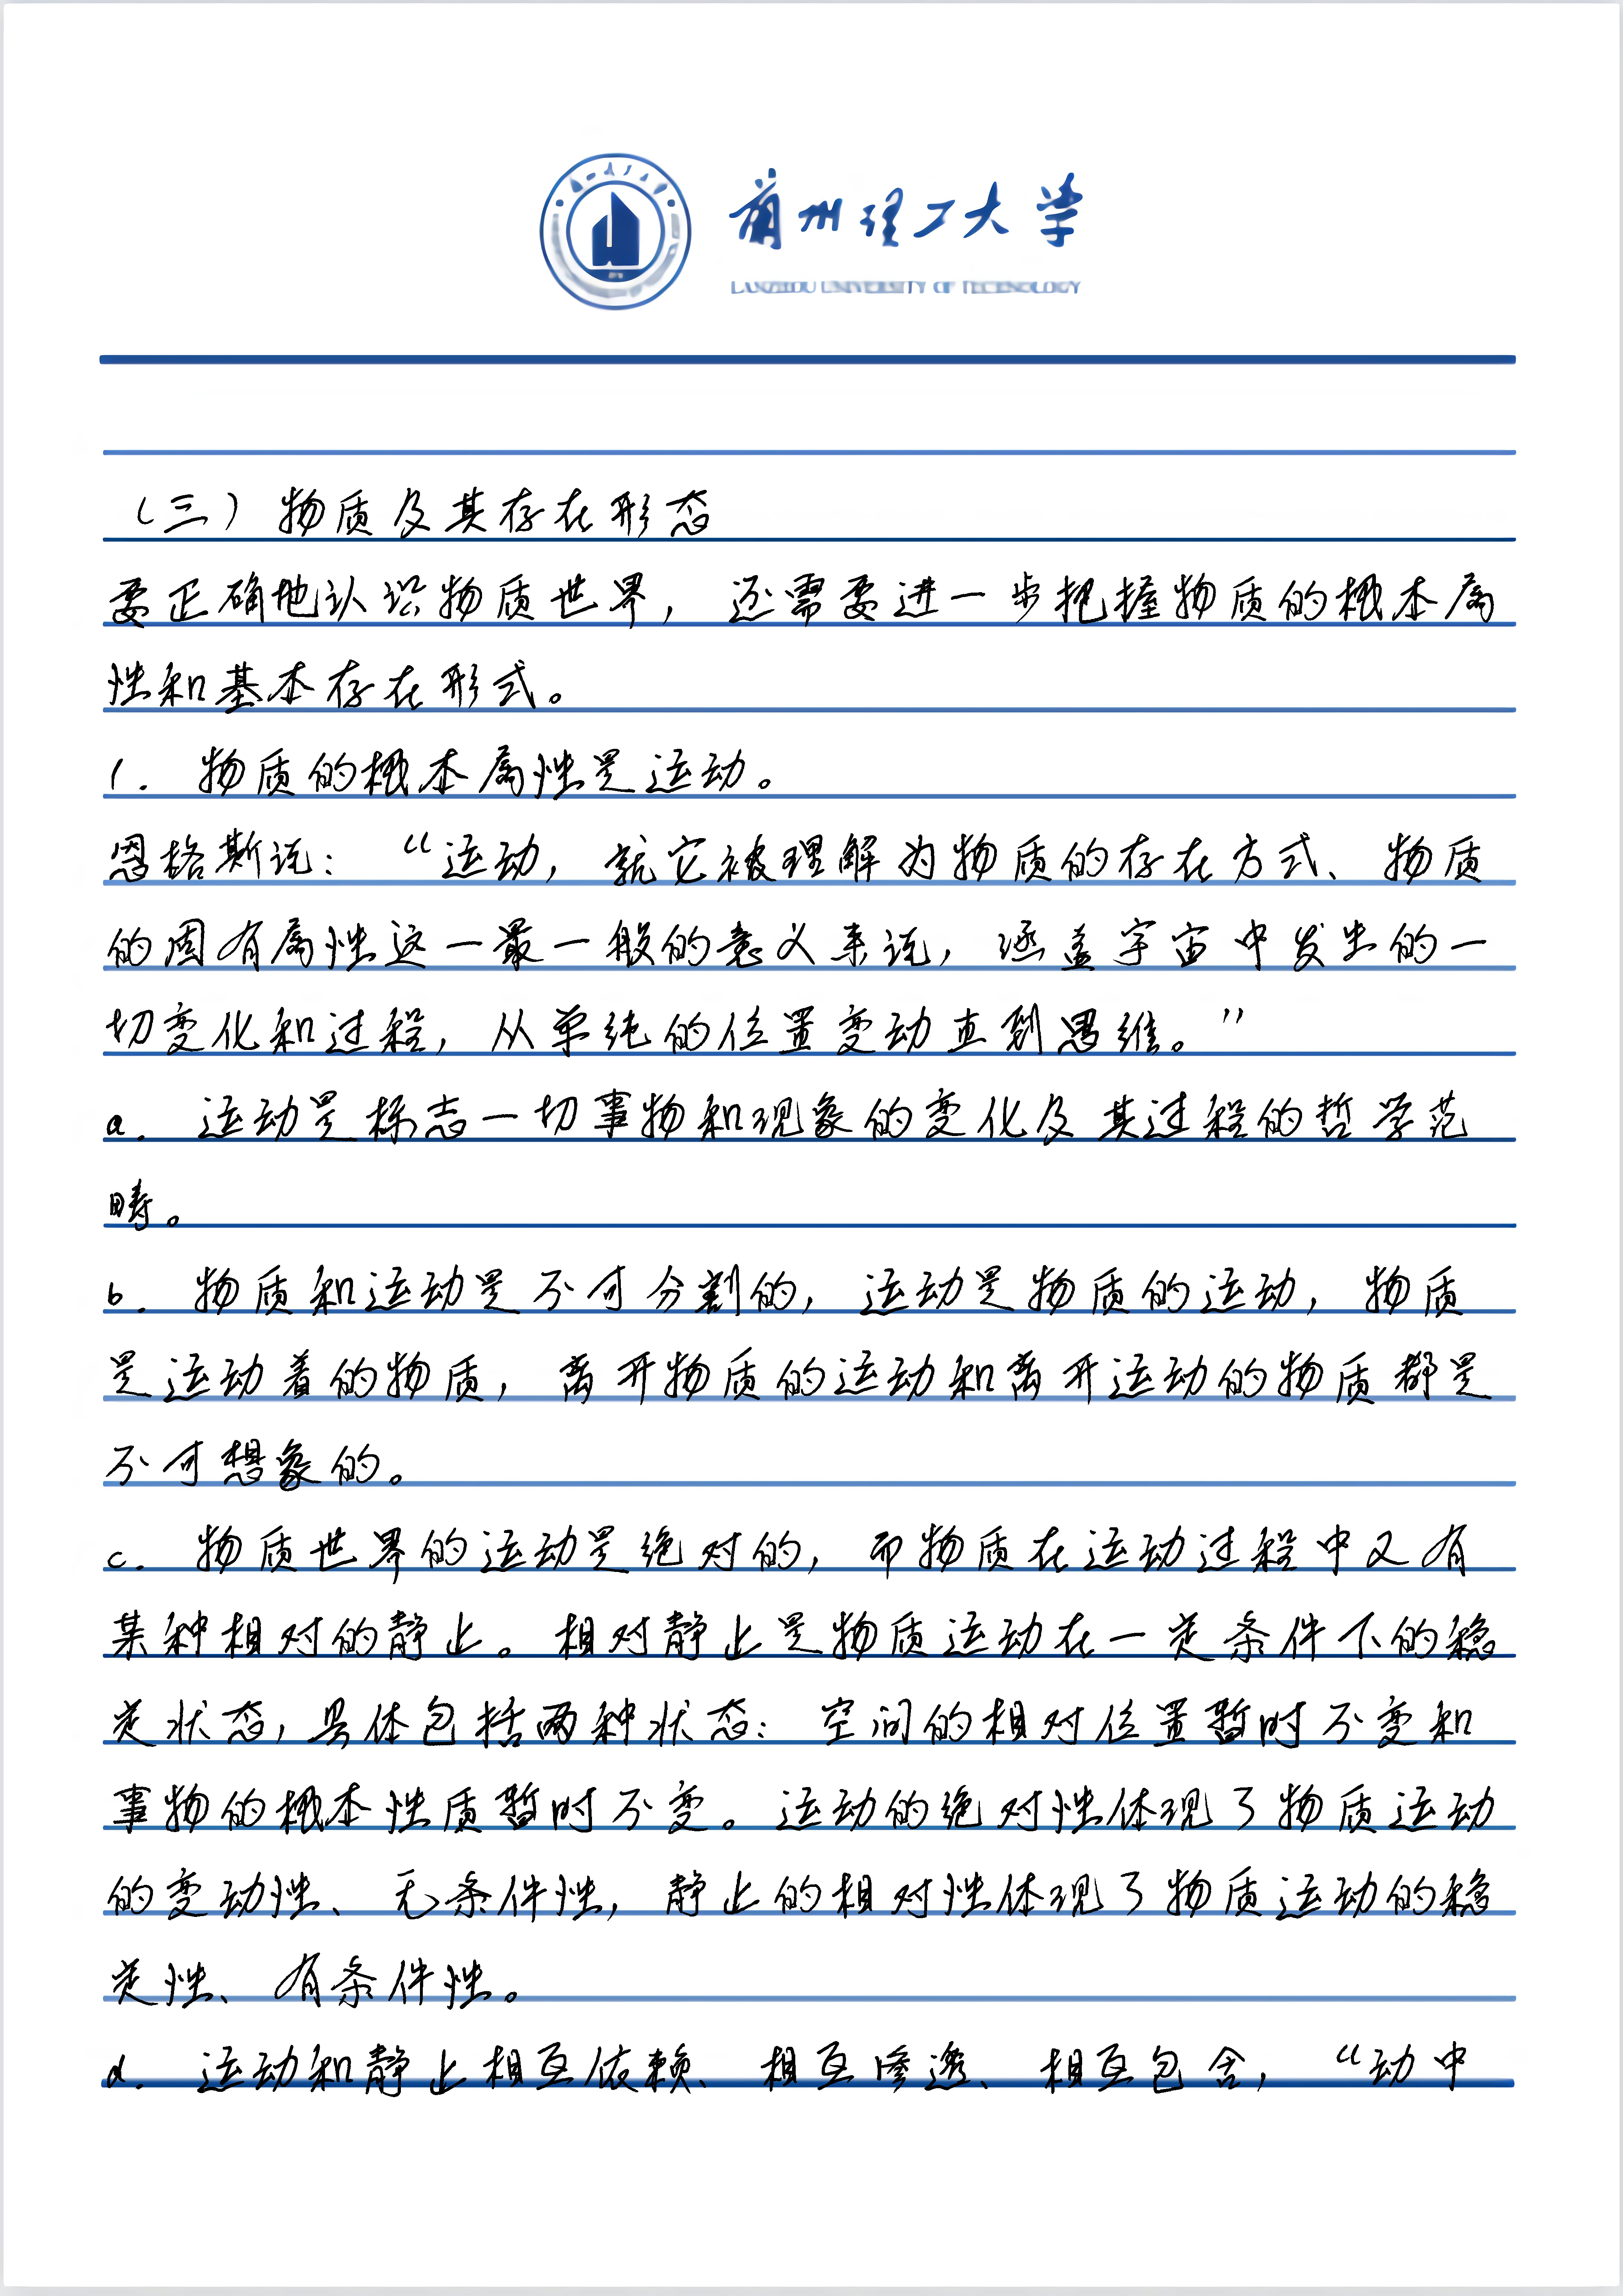 蘭州理工大学
LANZHOU UNIVERSITY OF TECHNOLOGY
（三）物质及其存在形态
要正确地认识物质世界，还需要进一步把握物质的根本属
性和基本存在形式。
1. 物质的根本属性是运动。
恩格斯说：“运动，就它被理解为物质的存在方式、物质
的固有属性这一最一般的意义来说，涵盖宇宙中发生的一
切变化和过程，从单纯的位置变动直到思维。”
a. 运动是标志一切事物和现象的变化及其过程的哲学范
畴。
b. 物质和运动是不可分割的，运动是物质的运动，物质
是运动着的物质，离开物质的运动和离开运动的物质都是
不可想象的。
c. 物质世界的运动是绝对的，而物质在运动过程中又有
某种相对的静止。相对静止是物质运动在一定条件下的稳
定状态，具体包括两种状态：空间的相对位置暂时不变和
事物的根本性质暂时不变。运动的绝对性体现了物质运动
的变动性、无条件性，静止的相对性体现了物质运动的稳
定性、有条件性。
d. 运动和静止相互依赖、相互渗透、相互包含，“动中